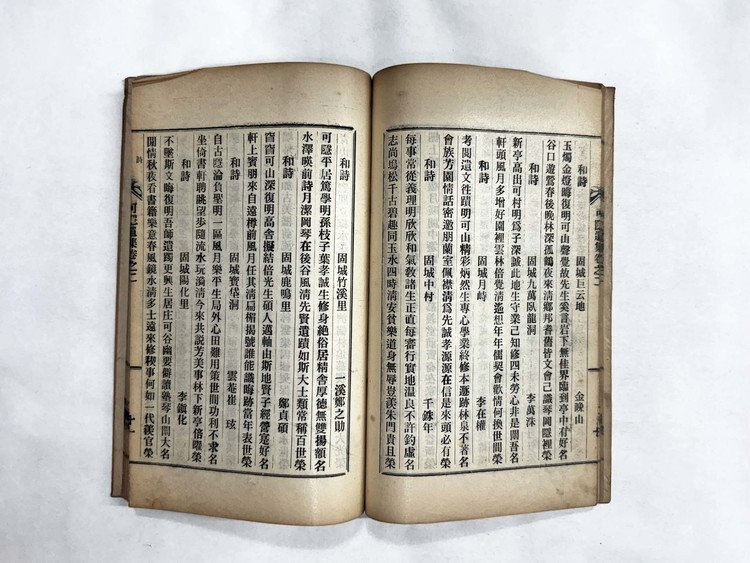 和詩 固城巨云地 金晚山
玉燭金燈晦復明可山聲譽故先生奚言岩下無桂界臨到亭中有好名
谷口遊鶯春後晚林深孤鶴夜來清鄉邦耆舊皆文會已識琴岡隱裡榮
和詩 固城九萬臥龍洞 李萬洙
新亭高出可村明爲子深誠此地生守業己知修四未勞心非是問吾名
軒頭風月多增好園裡雲林倍覺清遙想年年儒契會歡情何換世間榮
和詩 固城月峙 李在權
考閱遺文往蹟明可山精彩炳然生專心學業終修本遯跡林泉不著名
會族芳園情話密邀朋蘭室佩襟淸爲先誠孝源源在信是來頭必有榮
和詩 固城中村 千銖年
每事常從義理明欣欣和氣敎諸生正直每審行實地温良不許釣虛名
志尚塢松千古碧趣同玉水四時淸安貧樂道身無辱豈羨朱門貴且榮
和詩 固城竹溪里 一溪鄭之助
可隱平居篤學明孫枝子葉孝誠生修身絶俗居精舍厚德無雙揚額名
水澤暎前詩月潔岡琴在後谷風淸先賢遺蹟如斯大士類常稱百世榮
和詩 固城鹿鳴里 鄭貞碩
窅窅可山深復明高舍擬結倍光生碩人邁軸由斯地賢子經營寔好名
軒上賓朋來自遠樽前風月任其淸扁楣揭號誰能識晦跡當年表世榮
和詩 固城賓岱洞 雲菴崔玹
自古隱淪負聖明一區風月樂平生局外心田難用策世間功利不求名
坐倚書軒聘眺望步隨流水玩漪淸今來共説芳美事林下新亭倍曜榮
和詩 固城陽化里 李鎭化
不墜斯文晦復明吾師遺躅更興生居庄可谷幽要僻讀塾琴山間大名
閒情秋夜看書籍樂意春風鏡水淸多士遠來修稧事何如一代羨官榮